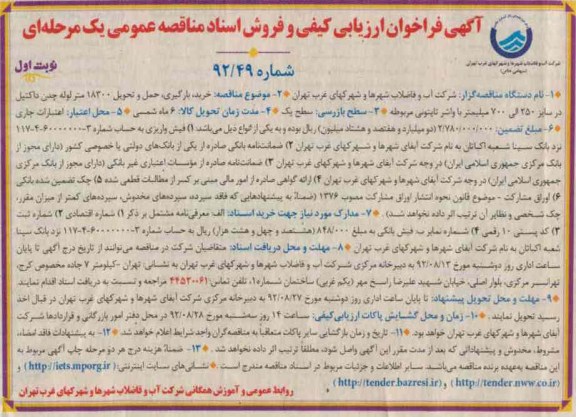 آگهی فراخوان ارزیابی کیفی و فروش اسناد مناقصه عمومی یک مرحله‌ای
شماره ۹۲/۴۹
نوبت اول
شرکت آب و فاضلاب شهرها و شهرکهای غرب تهران
(سهامی خاص)
۱- نام دستگاه مناقصه‌گزار: شرکت آب و فاضلاب شهرها و شهرکهای غرب تهران ۲- موضوع مناقصه: خرید، بارگیری، حمل و تحویل ۱۸۳۰۰ متر لوله چدن داکتیل
در سایز ۲۵۰ الی ۷۰۰ میلیمتر با واشر تایتونی مربوطه ۳- سطح بازرسی: سطح یک ۴- مدت زمان تحویل کالا: ۶ ماه شمسی ۵- محل اعتبار: اعتبارات جاری
۶- مبلغ تضمین: ۲/۷۸۰/۰۰۰/۰۰۰ (دو میلیارد و هفتصد و هشتاد میلیون) ریال بوده و به یکی از انواع ذیل می‌باشد ۱) فیش واریزی به حساب شماره ۳-۶۰۰۰۰۰۰-۴-۱۱۷
نزد بانک سینا شعبه اکباتان به نام شرکت آبفای شهرها و شهرکهای غرب تهران ۲) ضمانتنامه بانکی صادره از یکی از بانکهای دولتی یا خصوصی کشور (دارای مجوز از
بانک مرکزی جمهوری اسلامی ایران) در وجه شرکت آبفای شهرها و شهرکهای غرب تهران ۳) ضمانتنامه صادره از مؤسسات اعتباری غیر بانکی (دارای مجوز از بانک مرکزی
جمهوری اسلامی ایران) در وجه شرکت آبفای شهرها و شهرکهای غرب تهران ۴) ارائه گواهی صادره از امور مالی مبنی بر کسر از مطالبات قطعی شده ۵) چک تضمین شده بانکی
۶) اوراق مشارکت - موضوع قانون نحوه انتشار اوراق مشارکت مصوب ۱۳۷۶ (ضمناً به پیشنهادهایی که فاقد سپرده، سپرده‌های مخدوش، سپرده‌های کمتر از میزان مقرر،
چک شخصی و نظایر آن ترتیب اثر داده نخواهد شد.) ۷- مدارک مورد نیاز جهت خرید اسناد: الف: معرفی‌نامه مشتمل بر ذکر ۱) شماره اقتصادی ۲) شماره ثبت
۳) کد پستی ۱۰ رقمی ۴) شماره نمابر ب: فیش بانکی به مبلغ ۸۴۸/۰۰۰ (هشتصد و چهل و هشت هزار) ریال به حساب شماره ۳-۶۰۰۰۰۰۰-۴-۱۱۷ نزد بانک سینا
شعبه اکباتان به نام شرکت آبفای شهرها و شهرکهای غرب تهران ۸- مهلت و محل دریافت اسناد: متقاضیان شرکت در مناقصه می‌توانند از تاریخ درج آگهی تا پایان
ساعت اداری روز دوشنبه مورخ ۹۲/۰۸/۱۳ به دبیرخانه مرکزی شرکت آب و فاضلاب شهرها و شهرکهای غرب تهران به نشانی: تهران -کیلومتر ۷ جاده مخصوص کرج،
تهرانسر مرکزی، بلوار اصلی، خیابان شهید علیرضا راسخ مهر (یکم غربی) ساختمان شماره۱، تلفن تماس ۴۴۵۳۰۰۶۱ مراجعه و نسبت به دریافت اسناد اقدام نمایند.
۹- مهلت و محل تحویل پیشنهاد: تا پایان ساعت اداری روز دوشنبه مورخ ۹۲/۰۸/۲۷ به دبیرخانه مرکزی شرکت آبفای شهرها و شهرکهای غرب تهران در قبال اخذ
رسید تحویل نمایند. ۱۰- زمان و محل گشایش پاکات ارزیابی کیفی: ساعت ۱۴ روز سه‌شنبه مورخ ۹۲/۰۸/۲۸ در محل دفتر امور بازرگانی و قراردادها شرکت
آبفای شهرها و شهرکهای غرب تهران خواهد بود. ۱۱- تاریخ و زمان بازگشایی سایر پاکات متعاقباً به مناقصه‌گران واجد شرایط اعلام خواهد شد. ۱۲- به پیشنهادات فاقد امضاء،
مشروط، مخدوش و پیشنهاداتی که بعد از مدت مقرر این آگهی واصل شود، مطلقاً ترتیب اثر داده نخواهد شد. ۱۳- ضمناً: هزینه درج هر دو مرحله چاپ آگهی مربوط به
این مناقصه به‌عهده برنده مناقصه می‌باشد. سایر اطلاعات و جزئیات مربوط در اسناد مناقصه مندرج است نشانی‌های سایت اینترنتی ( http://iets.mporg.ir ) و
( http://tender.nww.co.ir ) و ( http://tender.bazresi.ir )
روابط عمومی و آموزش همگانی شرکت آب و فاضلاب شهرها و شهرکهای غرب تهران